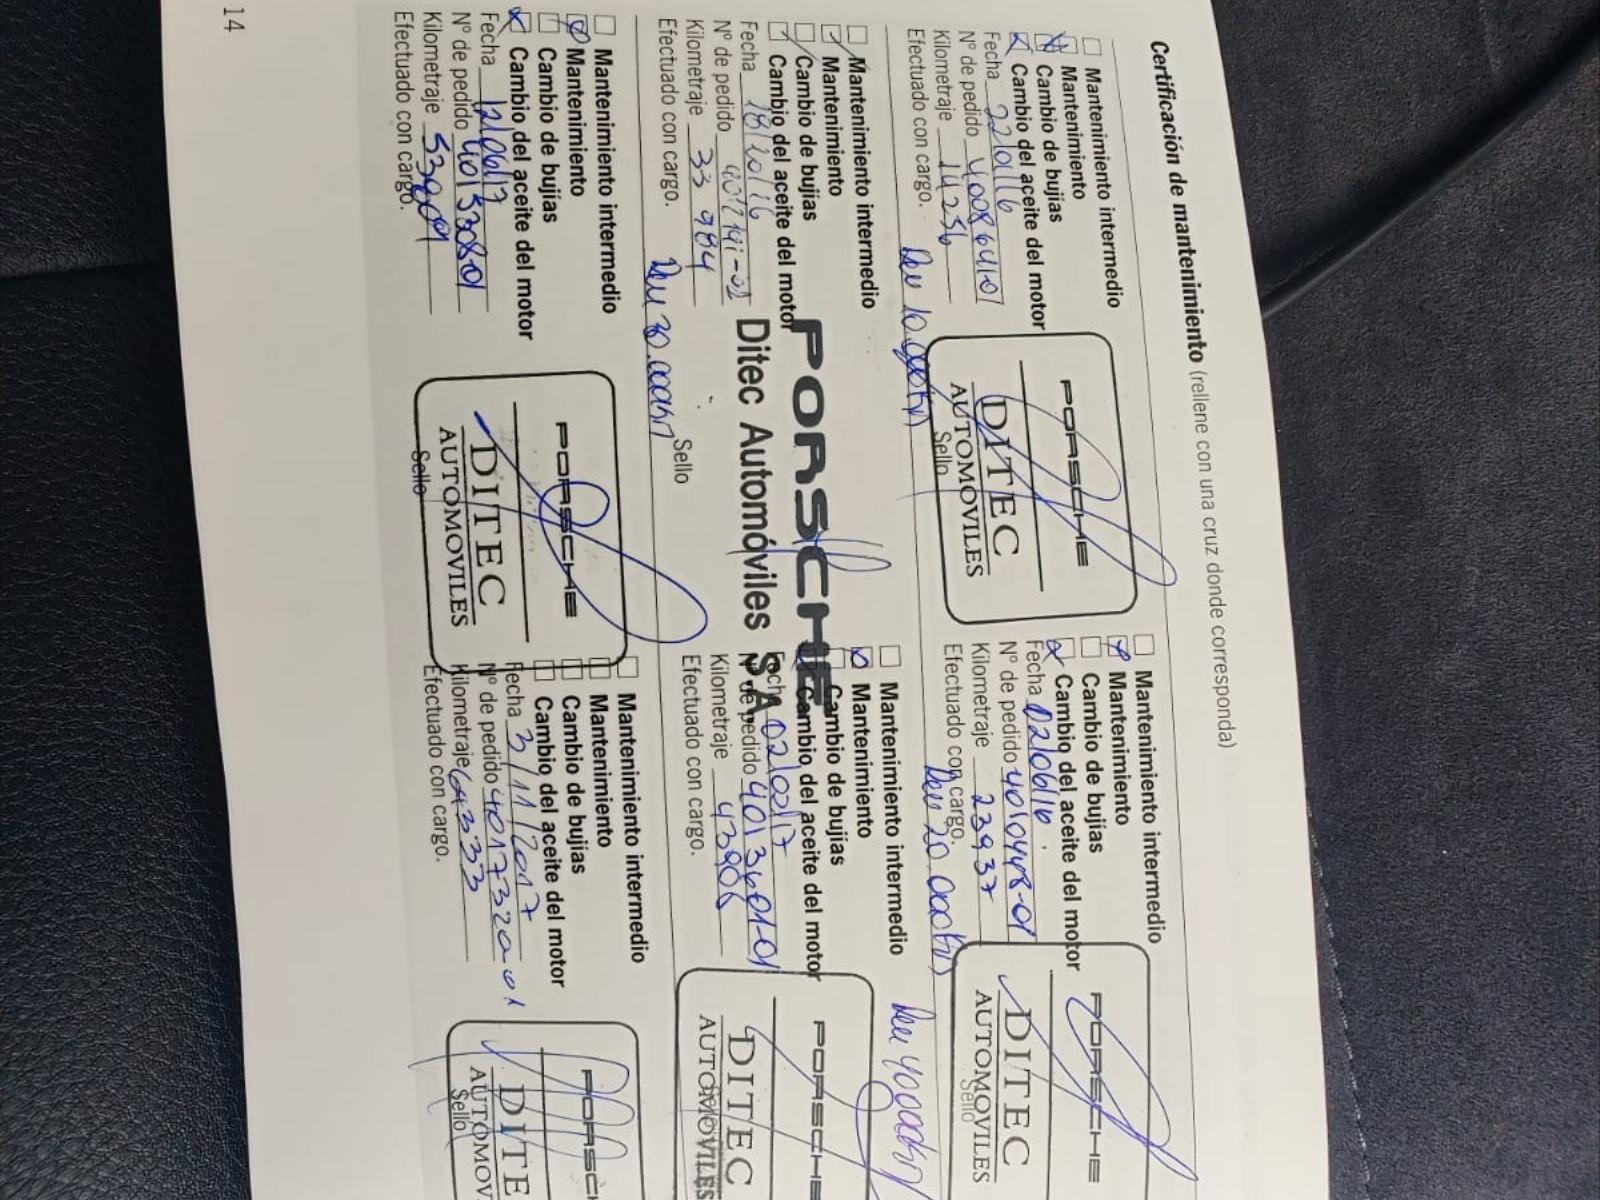 Certificación de mantenimiento (rellene con una cruz donde corresponda)
Mantenimiento intermedio
Mantenimiento
Cambio de bujías
Cambio del aceite del motor
Fecha 22/01/16
Nº de pedido 40086410
Kilometraje 14256
Efectuado con cargo.
Rev 10.000km
PORSCHE
DITEC
AUTOMOVILES
Sello
Mantenimiento intermedio
Mantenimiento
Cambio de bujías
Cambio del aceite del motor
Fecha 02/06/16
Nº de pedido 4010448-01
Kilometraje 23937
Efectuado con cargo.
Rev 20.000km
PORSCHE
DITEC
AUTOMOVILES
Sello
Mantenimiento intermedio
Mantenimiento
Cambio de bujías
Cambio del aceite del motor
Fecha 18/10/16
Nº de pedido
Kilometraje 33 984
Efectuado con cargo.
Rev 30.000km
Sello
PORSCHE
Ditec Automóviles S.A.
Mantenimiento intermedio
Mantenimiento
Cambio de bujías
Cambio del aceite del motor
Fecha
Nº de pedido
Kilometraje 43906
Efectuado con cargo.
Rev 40000km
PORSCHE
DITEC
AUTOMOVILES
Mantenimiento intermedio
Mantenimiento
Cambio de bujías
Cambio del aceite del motor
Fecha 12/06/17
Nº de pedido
Kilometraje
Efectuado con cargo.
PORSCHE
DITEC
AUTOMOVILES
Sello
Mantenimiento intermedio
Mantenimiento
Cambio de bujías
Cambio del aceite del motor
Fecha 3/11/2017
Nº de pedido
Kilometraje 64333
Efectuado con cargo.
PORSC
DITE
AUTOMOV
Sello
14